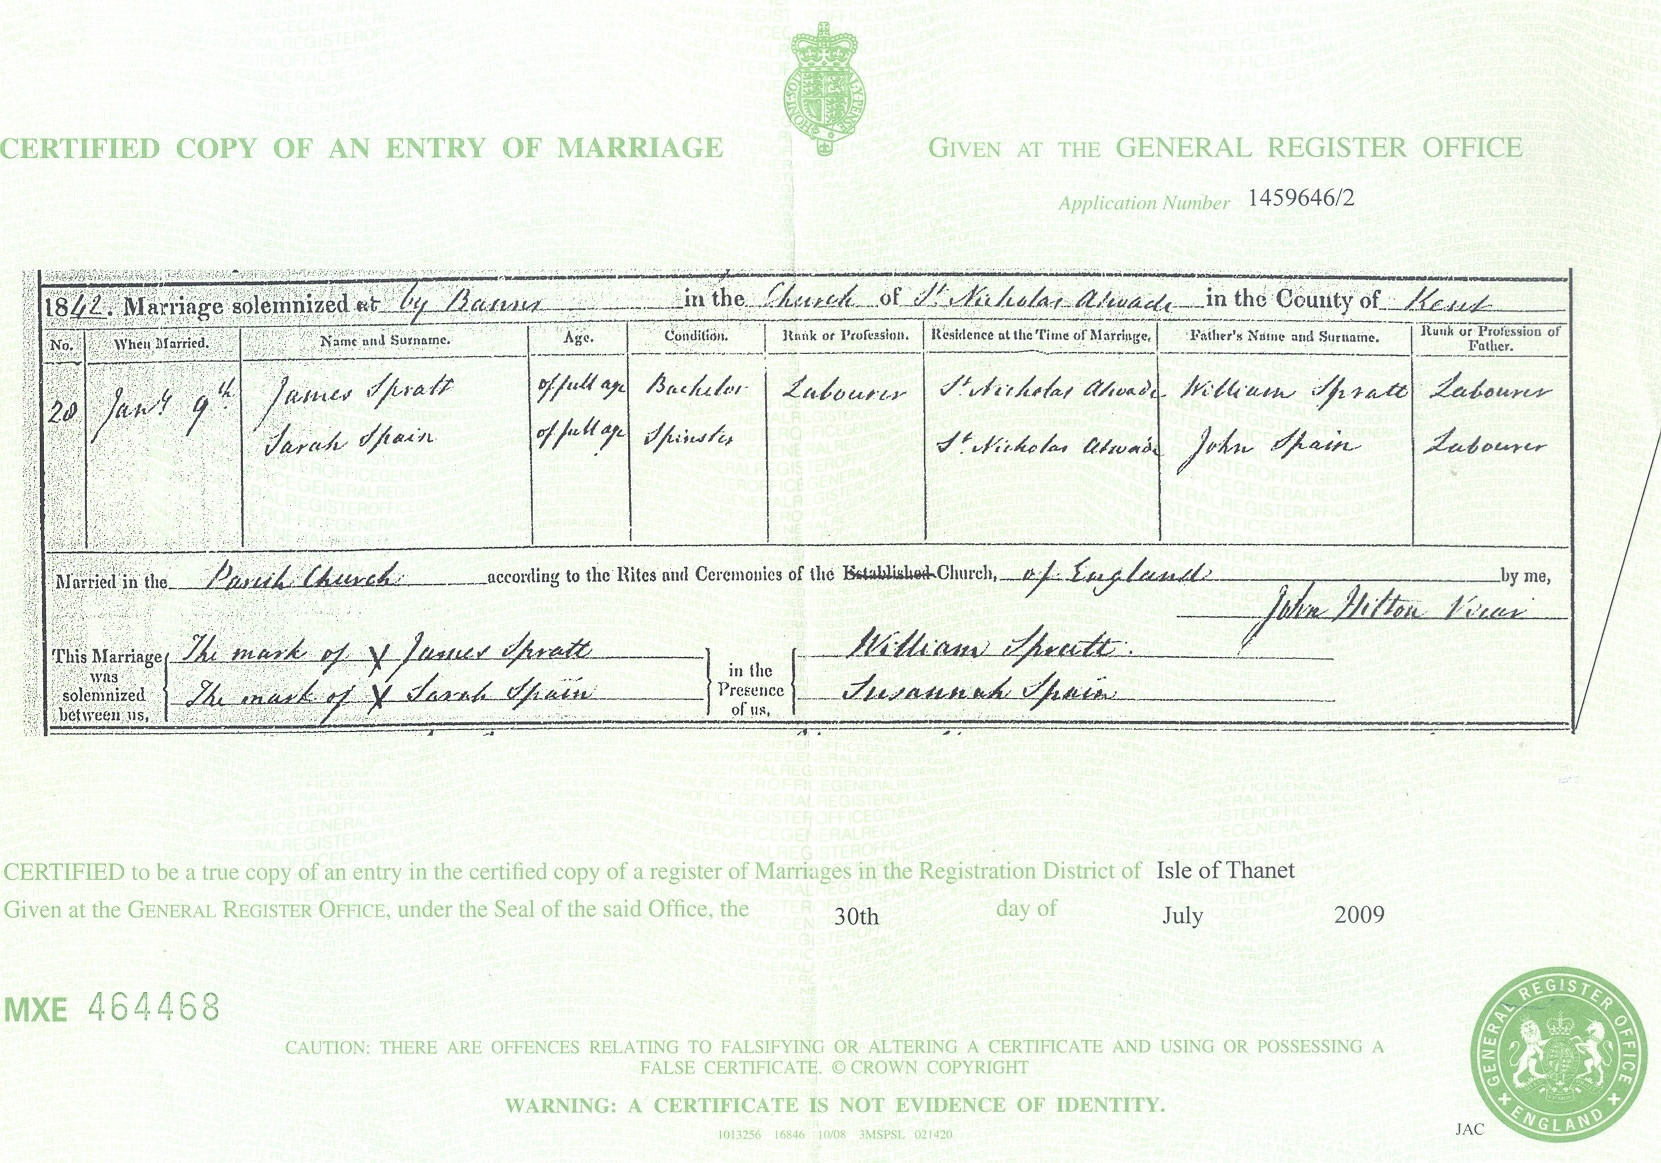 HONI SOIT QUI MAL Y PENSE
CERTIFIED COPY OF AN ENTRY OF MARRIAGE
GIVEN AT THE GENERAL REGISTER OFFICE
Application Number 1459646/2
1842. Marriage solemnized at by Banns in the Church of St Nicholas Atwade in the County of Kent
No. When Married. Name and Surname. Age. Condition. Rank or Profession. Residence at the Time of Marriage. Father's Name and Surname. Rank or Profession of Father.
28 Jany 9th James Spratt of full age Bachelor Labourer St Nicholas Atwade William Spratt Labourer
Sarah Spain of full age Spinster St Nicholas Atwade John Spain Labourer
Married in the Parish Church according to the Rites and Ceremonies of the Established Church, of England by me,
John Hilton Vicar
This Marriage was solemnized between us,
The mark of X James Spratt
The mark of X Sarah Spain
in the Presence of us,
William Spratt.
Susannah Spain
CERTIFIED to be a true copy of an entry in the certified copy of a register of Marriages in the Registration District of Isle of Thanet
Given at the GENERAL REGISTER OFFICE, under the Seal of the said Office, the 30th day of July 2009
MXE 464468
CAUTION: THERE ARE OFFENCES RELATING TO FALSIFYING OR ALTERING A CERTIFICATE AND USING OR POSSESSING A
FALSE CERTIFICATE. © CROWN COPYRIGHT
WARNING: A CERTIFICATE IS NOT EVIDENCE OF IDENTITY.
1013256 16846 10/08 3MSPSL 021420
JAC
GENERAL REGISTER OFFICE
ENGLAND